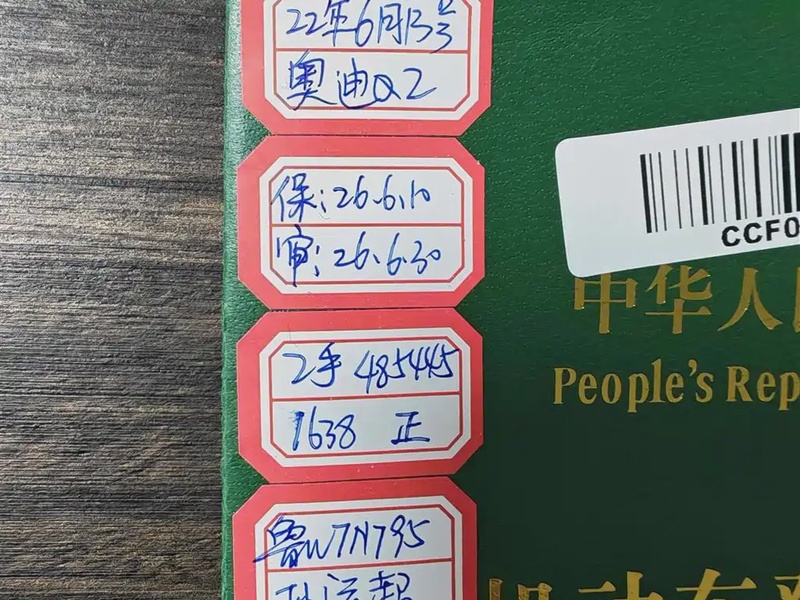 22年6月13号
奥迪Q2
保:26.6.10
审:26.6.30
2手 485445
1638 正
鲁W7N795
孙运超
CCF0
中华人民
People's Rep
机动车登